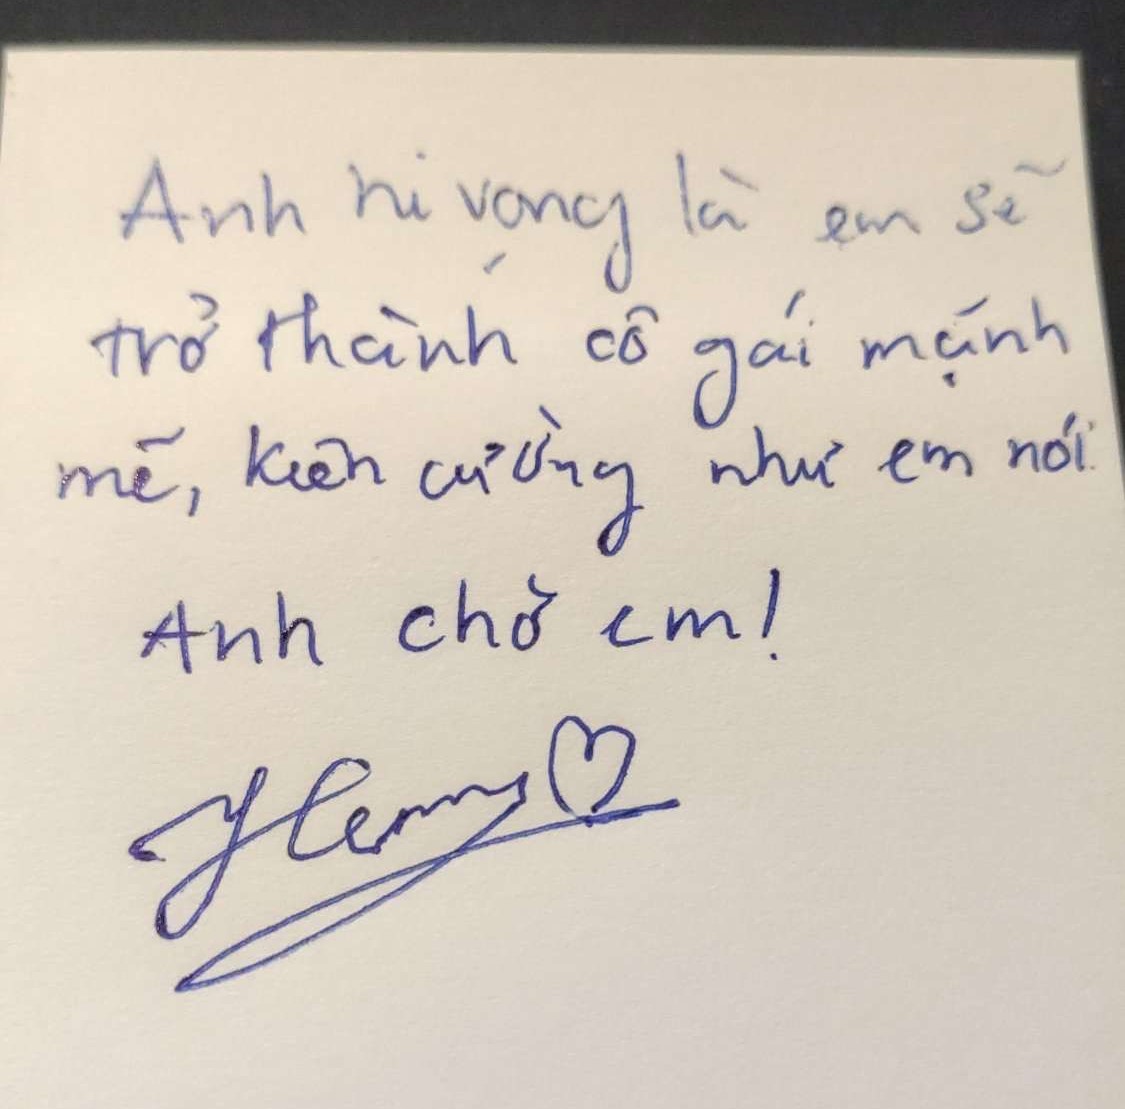 Anh hi vọng là em sẽ
trở thành cô gái mạnh
mẽ, kiên cường như em nói.
Anh chờ em!